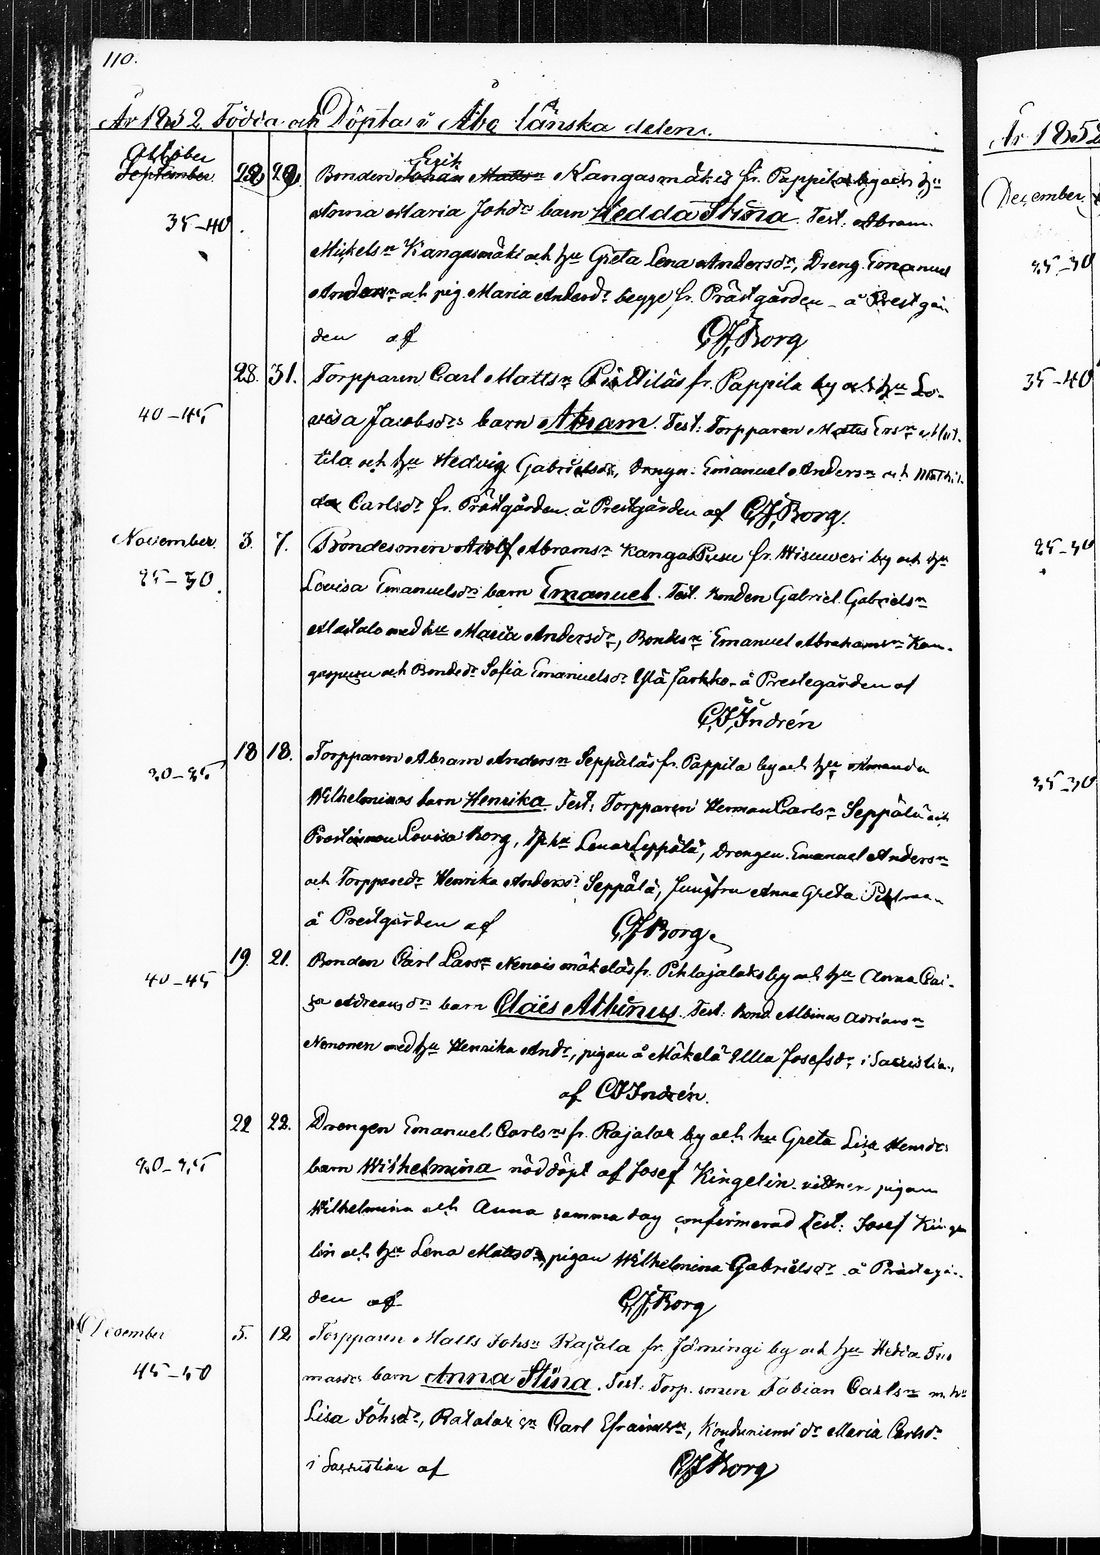 110.
År 1852. Födda och Döpta i Åbo länska delen.
År 1852
October
September 28 29 Bonden Erik Johan Matts Kangasmäki fr. Pappila by och hu
35-40 Anna Maria Johdr barn Hedda Stina. Test. Abram
Mickelsn Kangasmäki och hu Greta Lena Andersdr, Dreng Emanuel
Andersn och pig. Maria Andersdr begge fr. Prästgården - å Prestgår
den af CJ Borg
28. 31. Torpparen Carl Mattsn fr. Pappila by och hu Lo-
40-45 visa Jacobsdrs barn Abram. Test: Torpparen Matts
tila och hu Hedvig Gabrielsdr, Drngn Emanuel Andersn och Mathil
da Carlsdr fr. Prästgården å Prestgården af CJ Borg.
November. 3. 7. Bondesonen Adolf Abramsn Kangas by och hu
25-30. Lovisa Emanuelsdrs barn Emanuel. Test. bonden Gabriel Gabrielsn
Alatalo med hu Maria Andersdr, Bondesn Emanuel Abrahamsn Kan-
gaspusu och Bondedr Sofia Emanuelsdr Ylä Jarkko å Prestegården af
CJ Indrén
18 18. Torpparen Abram Andersn Seppäläs fr. Pappila by och hu Amanda
30-35 Wilhelminas barn Henrika. Test: Torpparen Herman Carlsn Seppälä och
Lovisa Borg, Lena Seppälä, Drengen Emanuel Andersn
och Torpparedr Henrika Andersdr Seppälä, Jungfru Anna Greta
å Prestgården af CJ Borg.
19. 21. Bonden Carl Larsn fr. Pihlajalaks by och hu Anna Cai-
40-45 sa Adreansdrs barn Claës Albinus. Test: Bond Albinus Adriansn
Nenonen med hu Henrika Andr, pigan å Mäkelä Ulla Josefsdr, i Sacristian,
af CJ Indrén.
22 22. Drengen Emanuel Carlsn fr. Rajalax by och hu Greta Lisa Henrdrs
20-25 barn Wilhelmina nöddöpt af Josef Kingelin. vittnen pigan
Wilhelmina och Anna samma dag confirmerad Test: Josef Kinge
lin och hu Lena Mattsdr, pigan Wilhelmina Gabrielsdr å Prästegår-
den af CJ Borg
December 5. 12. Torpparen Matts Johsn Rajala fr. by och hu Hedda Tho
45-50 masdrs barn Anna Stina. Test: Torp. sonen Fabian Carlsn m. hu
Lisa Johsdr, sn Carl Efraimsn, dr Maria Carlsdr
i Sacristian af CJ Borg
December.
25-30
35-40
25-30
25-30